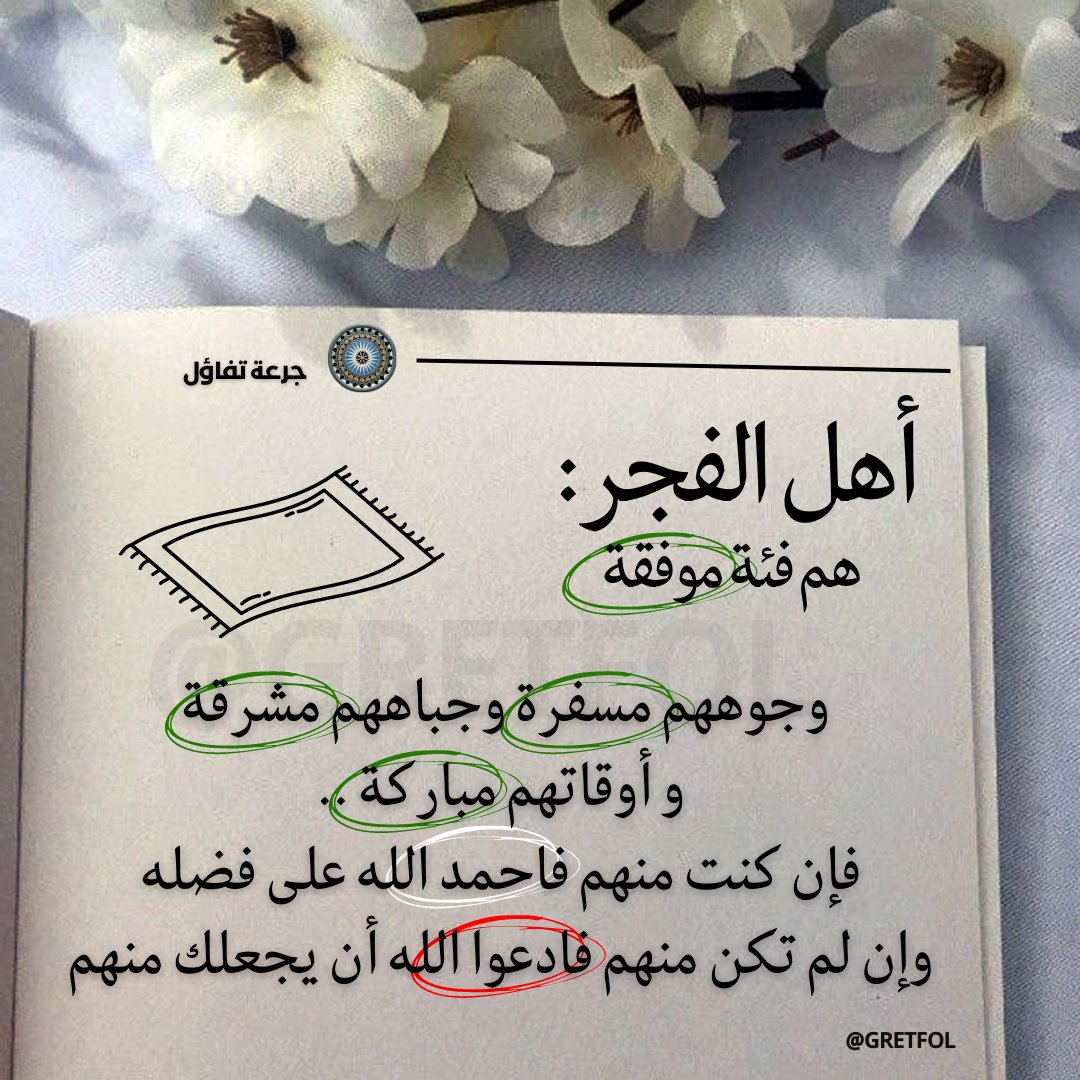 جرعة تفاؤل
أهل الفجر:
هم فئة موفقة
@GRETFOL
وجوههم مسفرة وجباههم مشرقة
و أوقاتهم مباركة ..
فإن كنت منهم فاحمد الله على فضله
وإن لم تكن منهم فادعوا الله أن يجعلك منهم
@GRETFOL